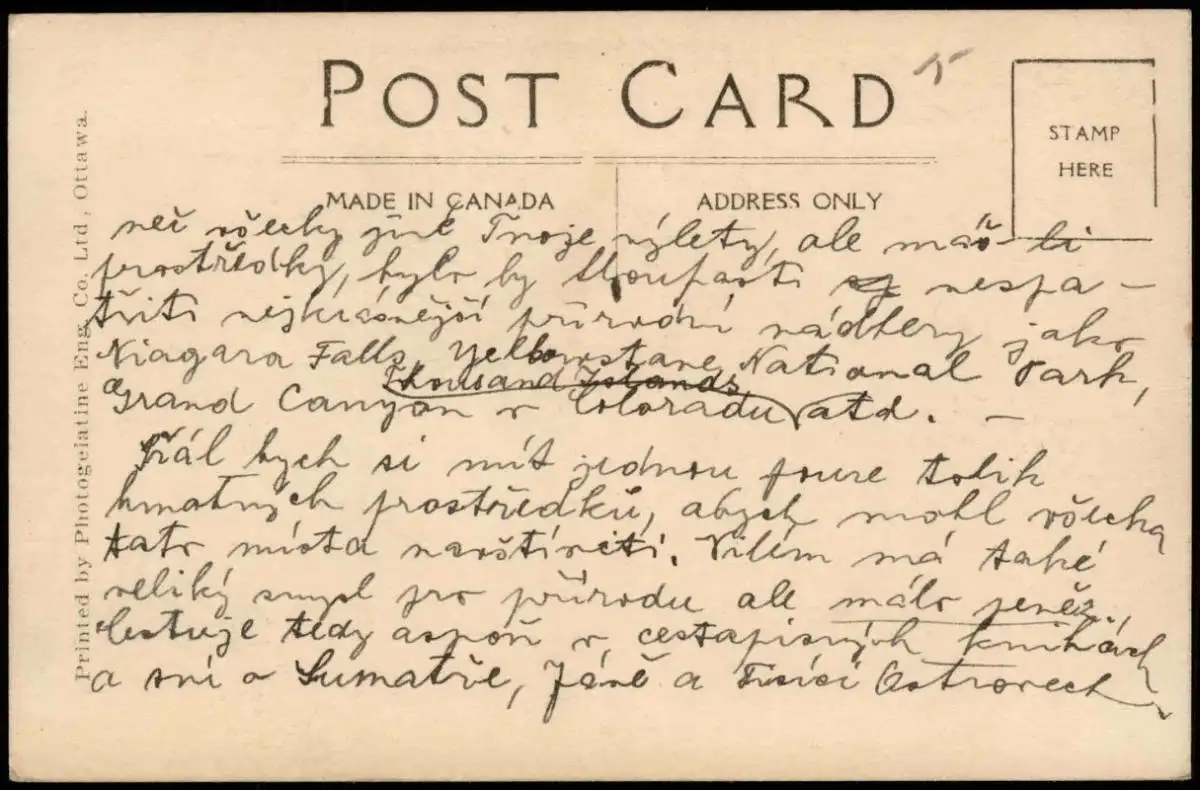 POST CARD
STAMP
HERE
MADE IN CANADA
ADDRESS ONLY
Printed by Photogelatine Eng. Co. Ltd, Ottawa.
než všecky jiné Tvoje výlety, ale máš-li
prostředky, bylo by hloupostí nespa-
třiti nejkrásnější přírodní nádhery jako
Niagara Falls, Yellowstane National Park,
Thousand Islands
Grand Canyon v Coloradu atd. —
Přál bych si mít jednou pouze tolik
hmotných prostředků, abych mohl všecka
tato místa navštíviti. Vilém má také
veliký smysl pro přírodu ale málo peněz,
cestuje tedy aspoň v cestopisných knihách
a sní o Sumatře, Jávě a Tisíci Ostrovech